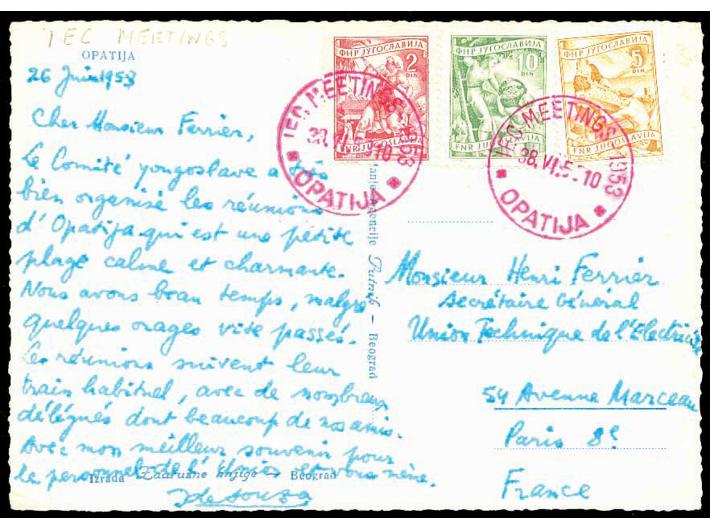 IEC MEETINGS
OPATIJA
26 Juin 1953
Cher Monsieur Ferrier,
Le Comité yougoslave a très
bien organisé les réunions
d'Opatija qui est une petite
plage calme et charmante.
Nous avons beau temps, malgré
quelques orages vite passés.
Les réunions suivent leur
train habituel, avec de nombreux
délégués dont beaucoup de nos amis.
Avec mon meilleur souvenir pour
le personnel de l' et vous même.
Izrada Zadružne knjige - Beograd
deSouza
ФНР ЈУГОСЛАВИЈА
2
DIN
FNR JUGOSLAVIJA
ФНР ЈУГОСЛАВИЈА
10
DIN
FNR JUGOSLAVIJA
ФНР ЈУГОСЛАВИЈА
5
DIN
FNR JUGOSLAVIJA
IEC MEETINGS 1953
OPATIJA
IEC MEETINGS 1953
OPATIJA
Putnik — Beograd
Monsieur Henri Ferrier
Secrétaire Général
Union Technique de l'Electricité
54 Avenue Marceau
Paris 8e
France